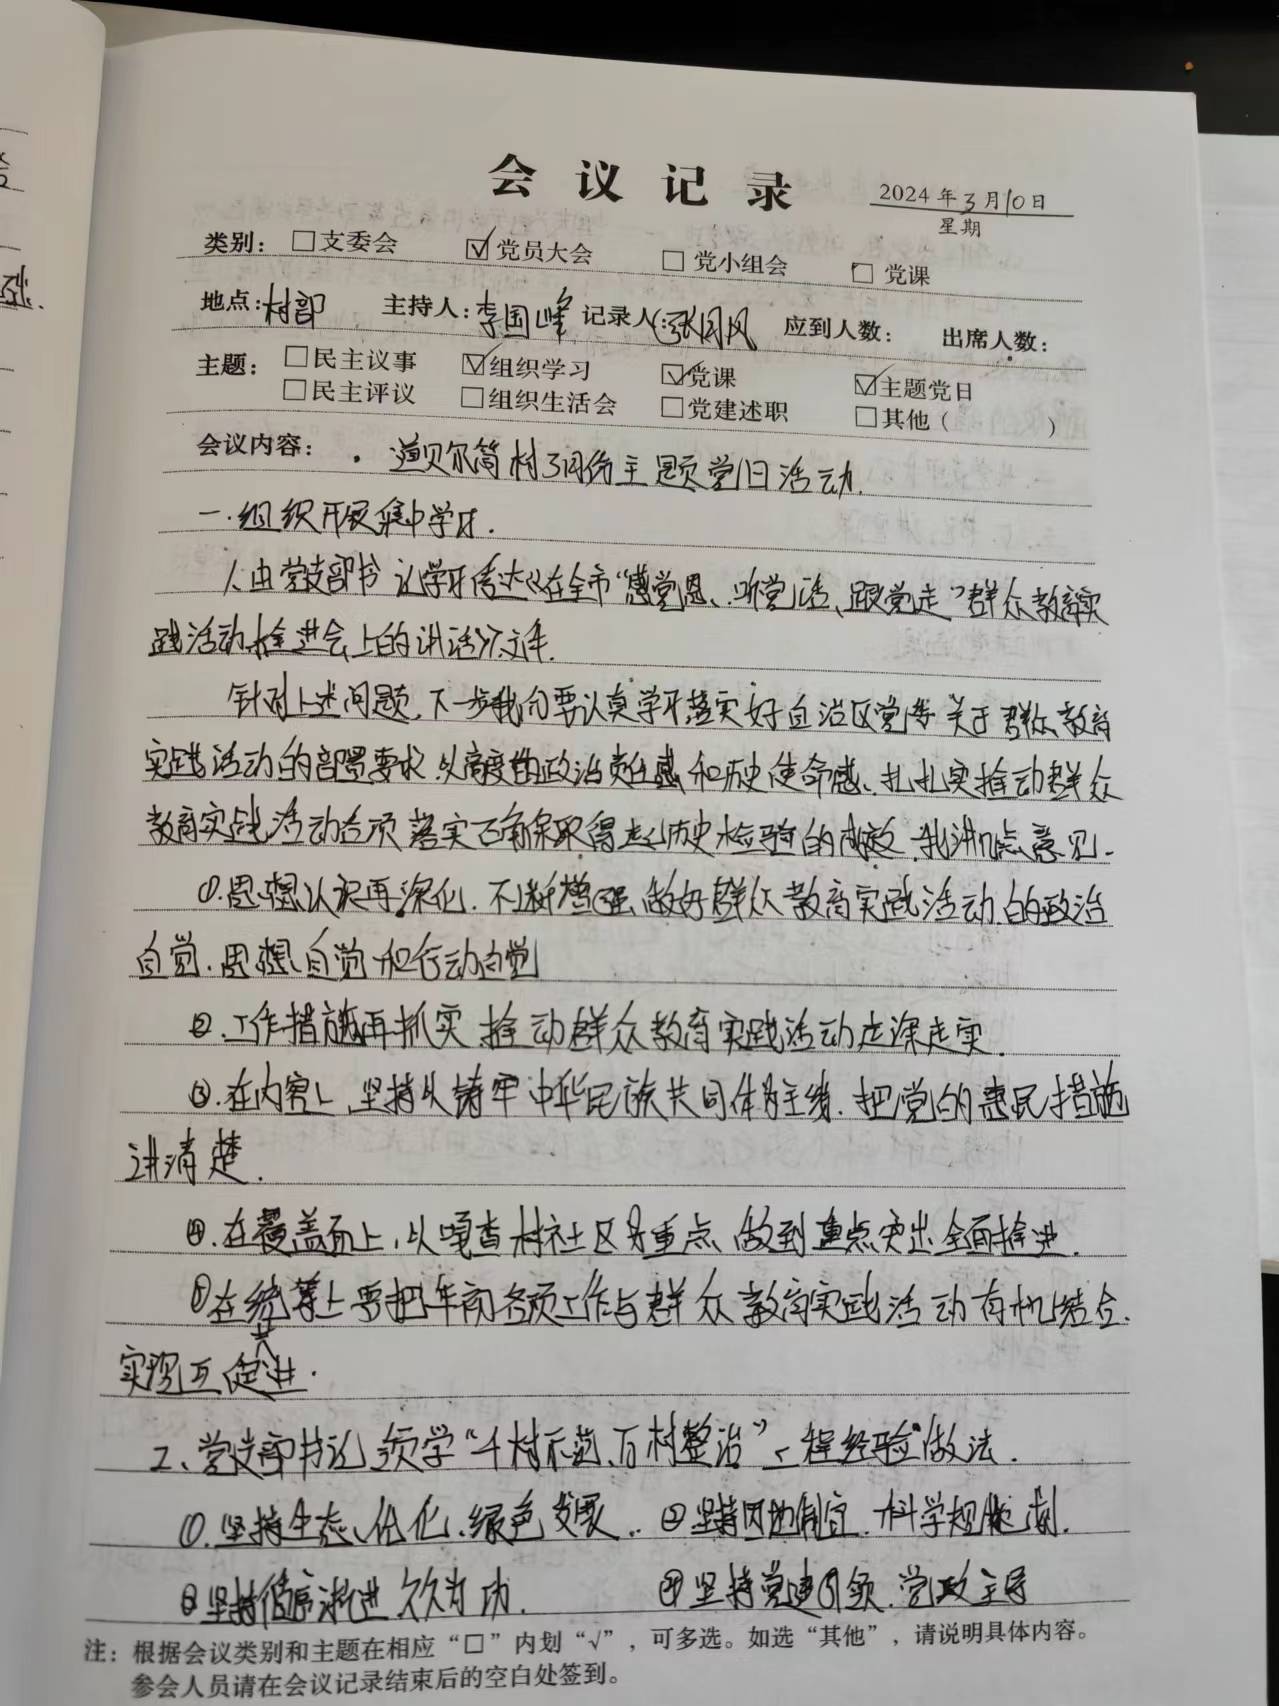 会议记录
2024年3月10日
星期
类别：□支委会 ☑党员大会 □党小组会 □党课
地点：村部 主持人：李国峰 记录人：张国风 应到人数： 出席人数：
主题：□民主议事 ☑组织学习 ☑党课 ☑主题党日
□民主评议 □组织生活会 □党建述职 □其他（ ）
会议内容： 道贝尔筒村 主题党日活动.
一.组织开展集中学习.
1.由党支部书记学习传达 在全市“感党恩、听党话、跟党走”群众教育实
践活动推进会上的讲话 文件.
针对上述问题,下一步我们要认真学习落实好自治区党 关于群众教育
实践活动的部署要求,以高度的政治责任感和历史使命感、扎扎实推动群众
教育实践活动各项落实 确保取得 历史检验的成效.我讲几点意见.
①.思想认识再深化.不断增强做好群众教育实践活动的政治
自觉.思想自觉和行动自觉
②.工作措施再抓实 推动群众教育实践活动走深走实.
③.在内容上.坚持以铸牢中华民族共同体为主线.把党的惠民措施
讲清楚.
④.在覆盖面上,以嘎查村社区为重点 做到重点突出全面推进.
⑤在统筹上要把年前各项工作与群众教育实践活动有机结合.
实现互促共进.
二、党支部书记领学“千村示范、万村整治”工程经验做法.
①.坚持生态优化.绿色发展.. ②坚持因地制宜.科学规划.
③坚持循序渐进 久久为功. ④坚持党建引领.党政主导
注：根据会议类别和主题在相应“□”内划“√”，可多选。如选“其他”，请说明具体内容。
参会人员请在会议记录结束后的空白处签到。